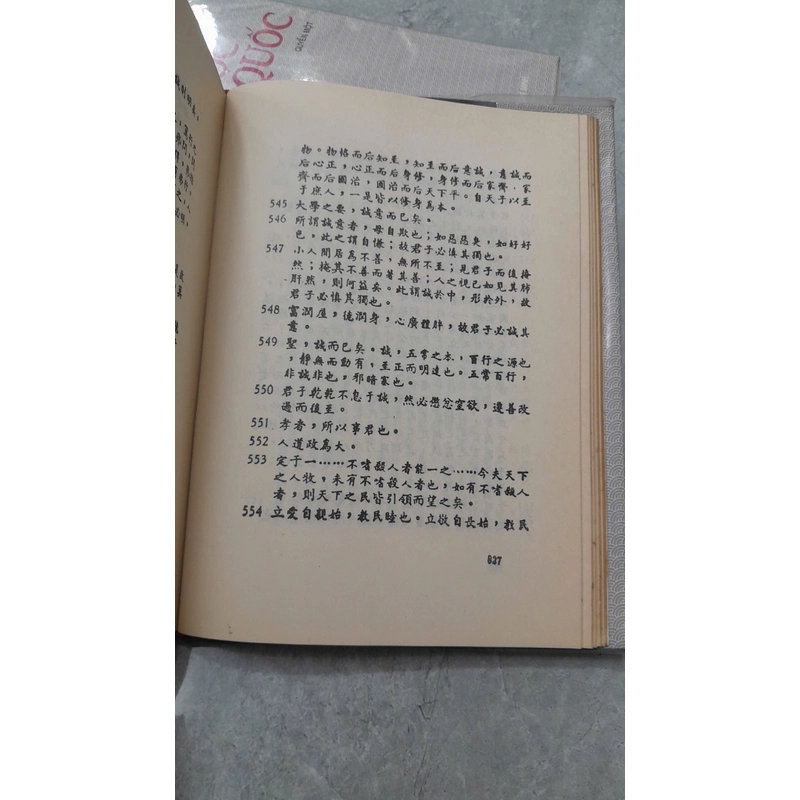 QUỐC
QUYỂN MỘT
物。物格而后知至，知至而后意誠，意誠而
后心正，心正而后身修，身修而后家齊，家
齊而后國治，國治而后天下平。自天子以至
于庶人，一是皆以修身為本。
545 大學之要，誠意而已矣。
546 所謂誠意者，毋自欺也；如惡惡臭，如好好
色。此之謂自慊；故君子必慎其獨也。
547 小人閒居為不善，無所不至；見君子而後掩
然；掩其不善而著其善；人之視己如見其肺
肝然，則何益矣。此謂誠於中，形於外，故
君子必慎其獨也。
548 富潤屋，德潤身，心廣體胖，故君子必誠其
意。
549 聖，誠而已矣。誠，五常之本，百行之源也
，靜無而動有，至正而明達也。五常百行，
非誠非也，邪暗塞也。
550 君子乾乾不息于誠，然必懲忿窒欲，遷善改
過而後至。
551 孝者，所以事君也。
552 人道政為大。
553 定于一……不嗜殺人者能一之……今夫天下
之人牧，未有不嗜殺人者也，如有不嗜殺人
者，則天下之民皆引領而望之矣。
554 立愛自親始，教民睦也。立敬自長始，教民
827